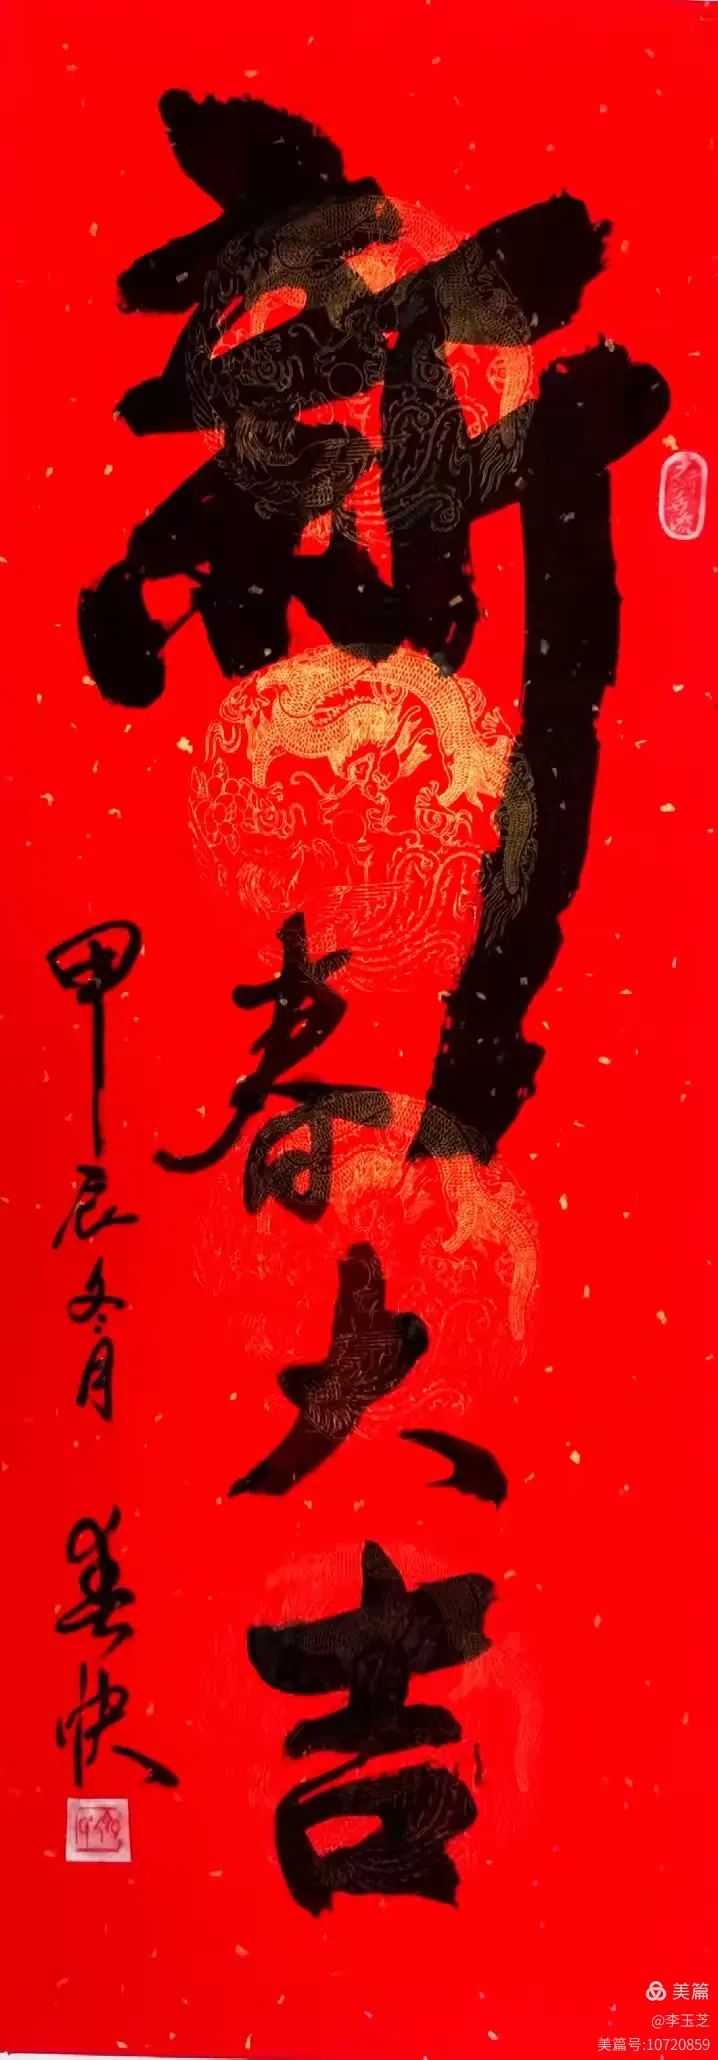 新春大吉
甲辰冬月
春快
美篇
@李玉芝
美篇号:10720859